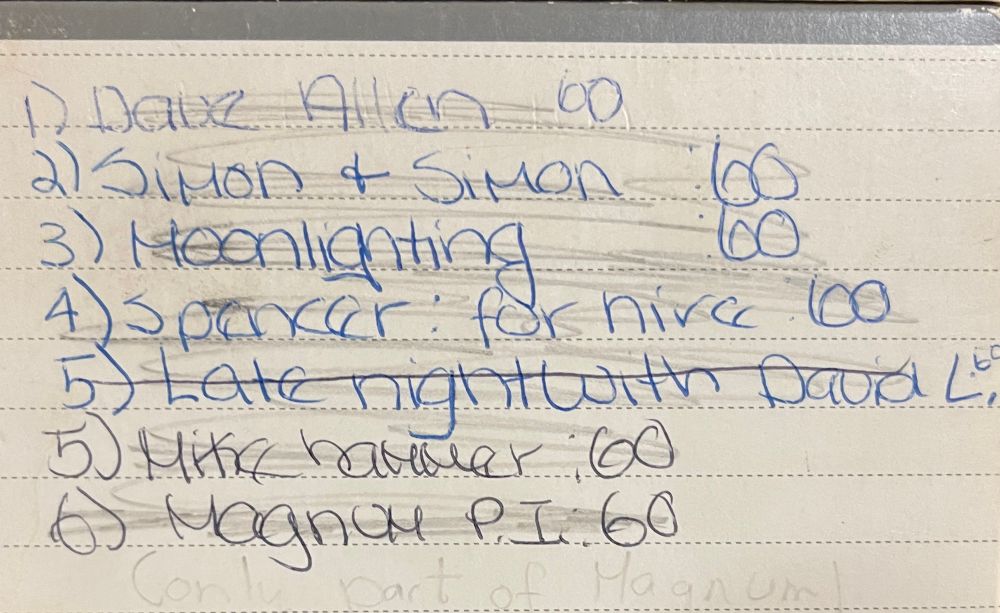 1) Dave Allen 60
2) Simon & Simon :60
3) Moonlighting :60
4) Spencer: for hire :60
5) Late night with David L. :60
5) Mike hammer :60
6) Magnum P.I. :60
(only part of Magnum)